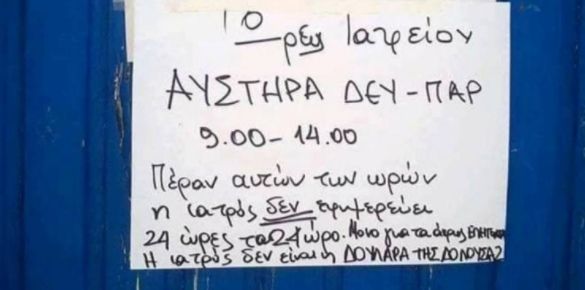 Ιατρείου
ΑΥΣΤΗΡΑ ΔΕΥ-ΠΑΡ
9.00-14.00
Πέραν αυτών των ωρών
η ιατρός δεν εφημερεύει
24 ώρες το 24ωρο. Μόνο για τα άκρως
Η ιατρός δεν είναι η ΔΟΥΛΑΡΑ ΤΗΣ ΔΟΝΟΥΣΑΣ